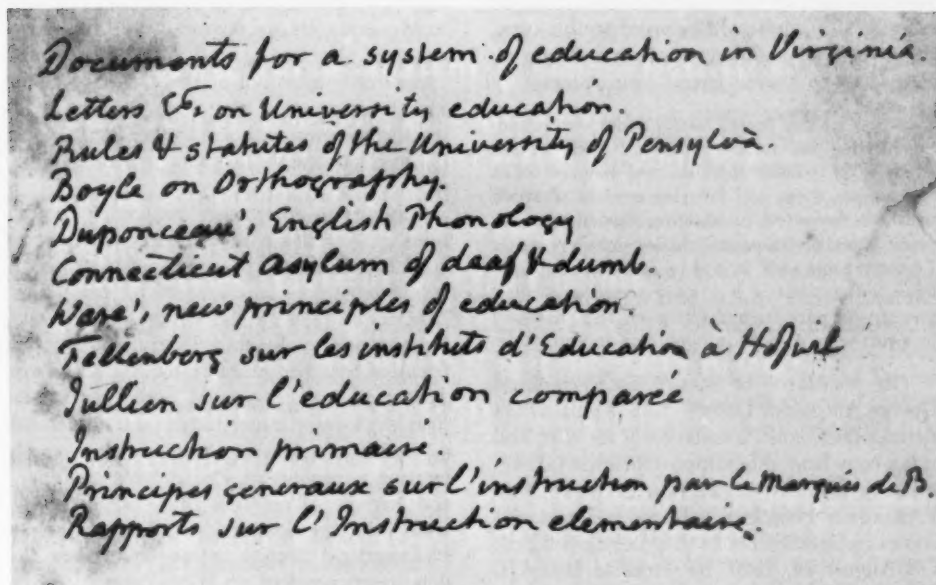 Documents for a system of education in Virginia.
Letters &c, on University education.
Rules & statutes of the University of Pensylvà.
Boyle on Orthography.
Duponceau's English Phonology
Connecticut Asylum of deaf & dumb.
Ware's new principles of education.
Fellenberg sur les instituts d'Education à Hofwl
Jullien sur l'education comparée
Instruction primaire.
Principes generaux sur l'instruction par le Marquis de B.
Rapports sur l'Instruction elementaire.